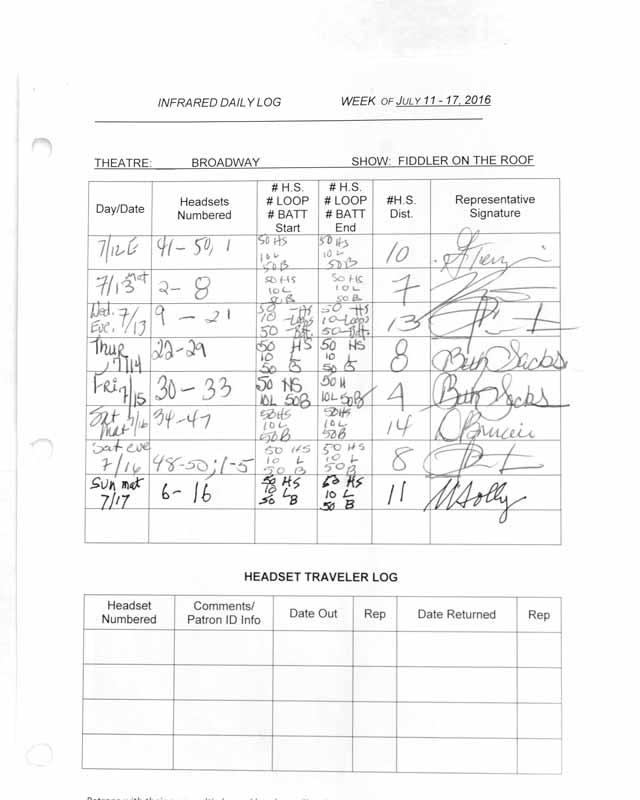 INFRARED DAILY LOG WEEK OF JULY 11 - 17, 2016
THEATRE: BROADWAY SHOW: FIDDLER ON THE ROOF
Day/Date Headsets Numbered # H.S. # LOOP # BATT Start # H.S. # LOOP # BATT End #H.S. Dist. Representative Signature
7/12 E 41 - 50, 1 50 HS 10 L 50 B 50 HS 10 L 50 B 10
7/13 mat 2 - 8 50 HS 10 L 50 B 50 HS 10 L 50 B 7
Wed. Eve. 7/13 9 - 21 50 - HS 10 - Loops 50 - Batt. 50 - HS 10 - Loops 50 - Batt. 13
Thur 7/14 22 - 29 50 HS 10 L 50 B 50 HS 10 L 50 B 8 Beth Sacks
Fri 7/15 30 - 33 50 HS 10L 50B 50 H 10L 50B 4 Beth Sacks
Sat Mat 7/16 34 - 47 50 HS 10 L 50 B 50 HS 10 L 50 B 14
Sat eve 7/16 48 - 50; 1 - 5 50 HS 10 L 50 B 50 HS 10 L 50 B 8
Sun mat 7/17 6 - 16 50 HS 10 L 50 B 50 HS 10 L 50 B 11
HEADSET TRAVELER LOG
Headset Numbered Comments/ Patron ID Info Date Out Rep Date Returned Rep